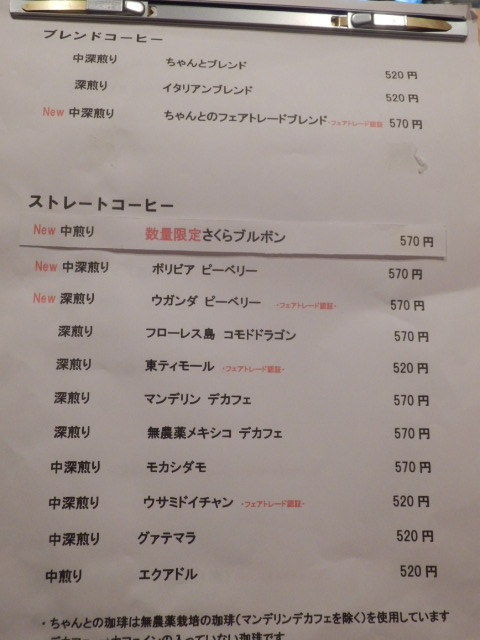 ブレンドコーヒー
中深煎り ちゃんとブレンド 520 円
深煎り イタリアンブレンド 520 円
New 中深煎り ちゃんとのフェアトレードブレンド -フェアトレード認証- 570 円
ストレートコーヒー
New 中煎り 数量限定さくらブルボン 570 円
New 中深煎り ボリビア ピーベリー 570 円
New 深煎り ウガンダ ピーベリー -フェアトレード認証- 570 円
深煎り フローレス島 コモドドラゴン 570 円
深煎り 東ティモール -フェアトレード認証- 520 円
深煎り マンデリン デカフェ 570 円
深煎り 無農薬メキシコ デカフェ 570 円
中深煎り モカシダモ 570 円
中深煎り ウサミドイチャン -フェアトレード認証- 520 円
中深煎り グァテマラ 520 円
中煎り エクアドル 520 円
・ちゃんとの珈琲は無農薬栽培の珈琲(マンデリンデカフェを除く)を使用しています
デカフェ カフェインの入っていない珈琲です